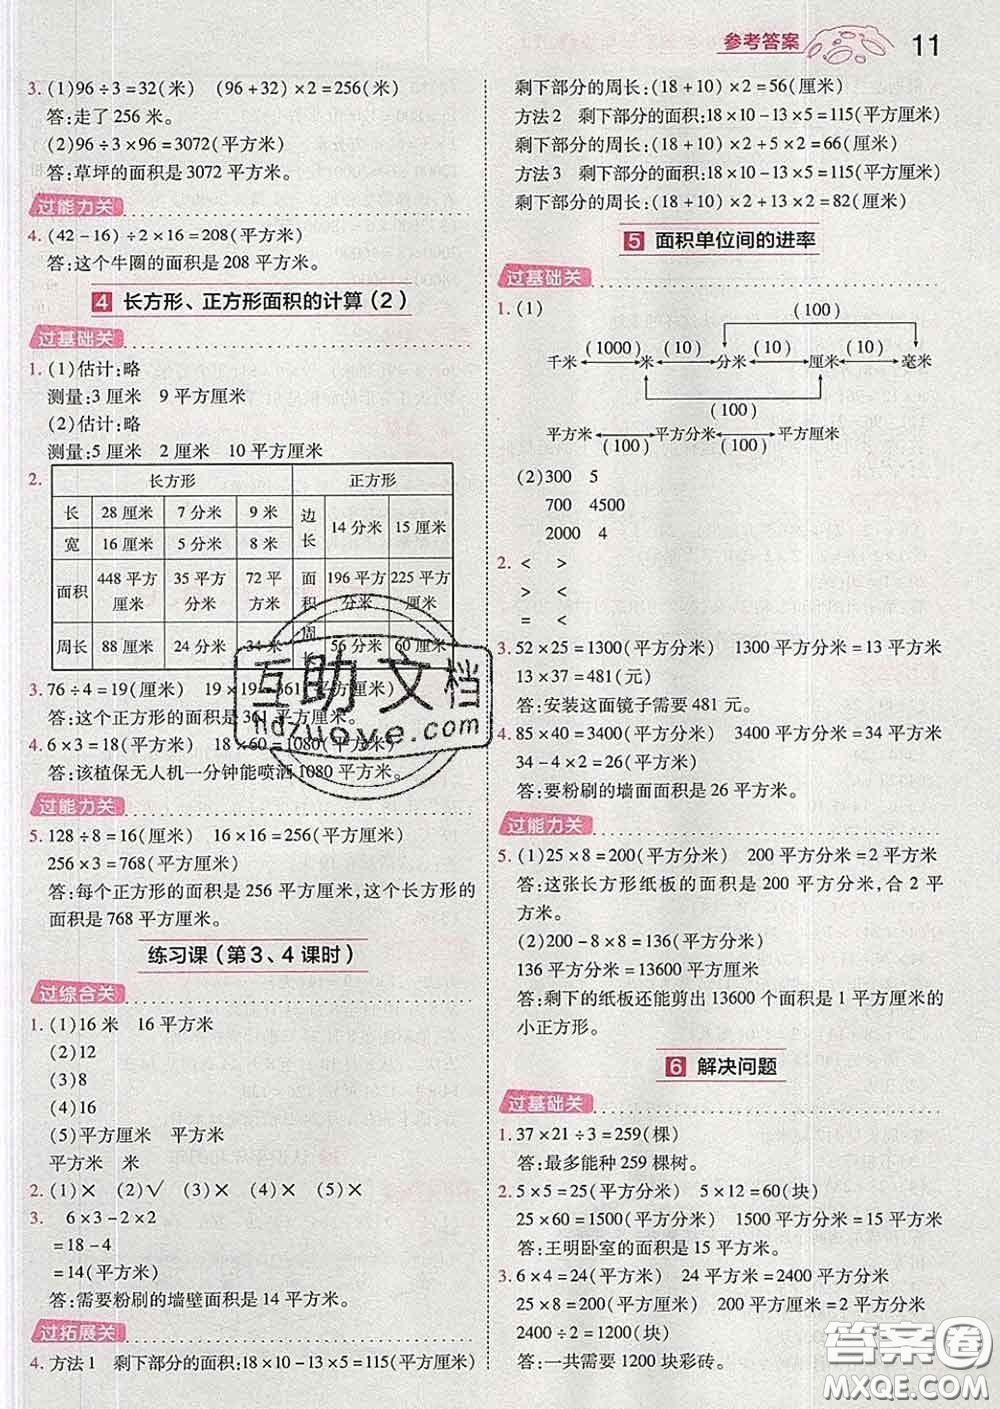 参考答案 11
3. (1)96÷3=32(米) (96+32)×2=256(米)
答:走了256米。
(2)96÷3×96=3072(平方米)
答:草坪的面积是3072平方米。
过能力关
4. (42-16)÷2×16=208(平方米)
答:这个牛圈的面积是208平方米。
4 长方形、正方形面积的计算(2)
过基础关
1. (1)估计:略
测量:3厘米 9平方厘米
(2)估计:略
测量:5厘米 2厘米 10平方厘米
2.
长方形 正方形
长 28厘米 7分米 9米 边长 14分米 15厘米
宽 16厘米 5分米 8米
面积 448平方厘米 35平方分米 72平方米 面积 196平方分米 225平方厘米
周长 88厘米 24分米 34米 周长 56分米 60厘米
3. 76÷4=19(厘米) 19×19=361(平方厘米)
答:这个正方形的面积是361平方厘米。
4. 6×3=18(平方米) 18×60=1080(平方米)
答:该植保无人机一分钟能喷洒1080平方米。
过能力关
5. 128÷8=16(厘米) 16×16=256(平方厘米)
256×3=768(平方厘米)
答:每个正方形的面积是256平方厘米,这个长方形的
面积是768平方厘米。
练习课(第3、4课时)
过综合关
1. (1)16米 16平方米
(2)12
(3)8
(4)16
(5)平方厘米 平方米
平方米 米
2. (1)× (2)√ (3)× (4)× (5)×
3. 6×3-2×2
=18-4
=14(平方米)
答:需要粉刷的墙壁面积是14平方米。
过拓展关
4. 方法1 剩下部分的面积:18×10-13×5=115(平方厘米)
剩下部分的周长:(18+10)×2=56(厘米)
方法2 剩下部分的面积:18×10-13×5=115(平方厘米)
剩下部分的周长:(18+10)×2+5×2=66(厘米)
方法3 剩下部分的面积:18×10-13×5=115(平方厘米)
剩下部分的周长:(18+10)×2+13×2=82(厘米)
5 面积单位间的进率
过基础关
1. (1)
(100)
千米 (1000) 米 (10) 分米 (10) 厘米 (10) 毫米
(100)
(100)
平方米 (100) 平方分米 (100) 平方厘米
(2)300 5
700 4500
2000 4
2. < >
> <
= <
3. 52×25=1300(平方分米) 1300平方分米=13平方米
13×37=481(元)
答:安装这面镜子需要481元。
4. 85×40=3400(平方分米) 3400平方分米=34平方米
34-4×2=26(平方米)
答:要粉刷的墙面面积是26平方米。
过能力关
5. (1)25×8=200(平方分米) 200平方分米=2平方米
答:这张长方形纸板的面积是200平方分米,合2平
方米。
(2)200-8×8=136(平方分米)
136平方分米=13600平方厘米
答:剩下的纸板还能剪出13600个面积是1平方厘米的
小正方形。
6 解决问题
过基础关
1. 37×21÷3=259(棵)
答:最多能种259棵树。
2. 5×5=25(平方分米) 5×12=60(块)
25×60=1500(平方分米) 1500平方分米=15平方米
答:王明卧室的面积是15平方米。
3. 6×4=24(平方米) 24平方米=2400平方分米
2×1=2(平方分米)
2400÷2=1200(块)
答:一共需要1200块彩砖。
互助文档
hdzuoye.com
答案圈
MXQE.COM